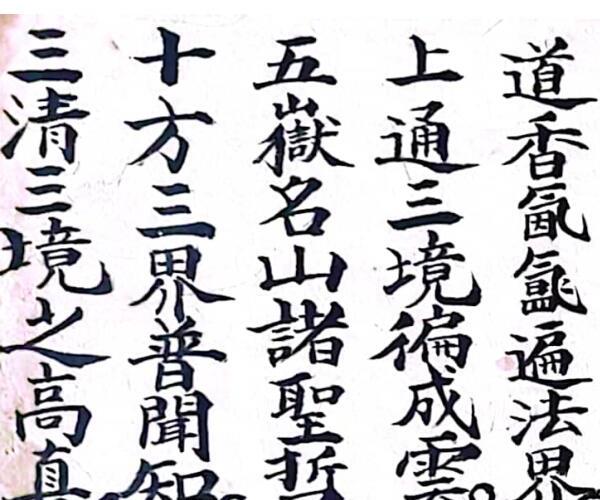 道香氤氲遍法界
上通三境徧成雲
五嶽名山諸聖哲
十方三界普聞知
三清三境之高真